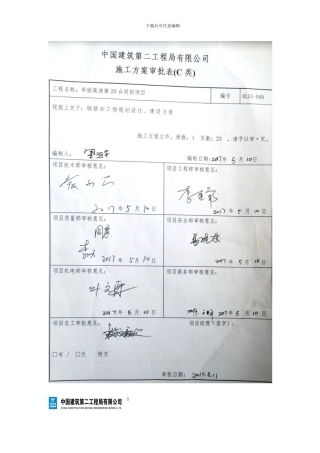 下载后可任意编辑
中国建筑第二工程局有限公司
施工方案审批表(C类)
工程名称：华丽高速第20合同段项目 编号
现报上关于：钢筋加工棚规划设计、建设方案
施工方案文件，册数：1 页数：23 ，请予以审核。
编制人： 编制日期：2017年5月10日
项目技术部审核意见： 项目工程部审核意见：
2017年5月10日 2017年5月10日
项目质量部审核意见： 项目安全部审核意见：
同意
2017年5月10日 2017年5月10日
项目机电部审核意见： 项目商务部审核意见：
2017年5月10日 2017年5月10日
项目总工审批意见： 项目经理(签字)：
□有/□无 附页 审批日期：2017.5.11
中国建筑第二工程局有限公司 1
CHINA CONSTRUCTION SECOND ENGINEERING BUREAU LTD.